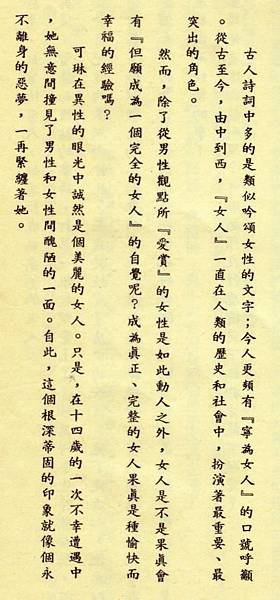 古人詩詞中多的是類似吟頌女性的文字；今人更頻有『寧為女人』的口號呼籲
。從古至今，由中到西，『女人』一直在人類的歷史和社會中，扮演著最重要、最
突出的角色。
然而，除了從男性觀點所『愛賞』的女性是如此動人之外，女人是不是果真會
有『但願成為一個完全的女人』的自覺呢？成為真正、完整的女人果真是種愉快而
幸福的經驗嗎？
可琳在異性的眼光中誠然是個美麗的女人。只是，在十四歲的一次不幸遭遇中
，她無意間撞見了男性和女性間醜陋的一面。自此，這個根深蒂固的印象就像個永
不離身的惡夢，一再緊纏著她。